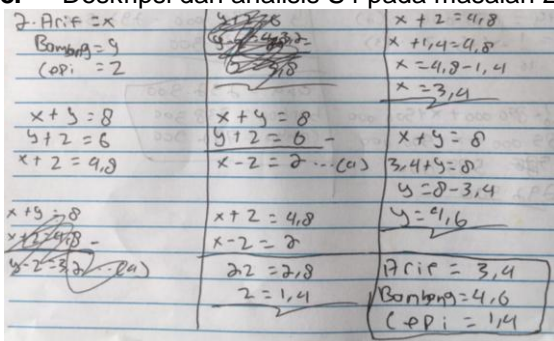 Deskripsi dan analisis S4 pada masalah 2
2. Arif = x
Bambang = y
Cepi = z
x + y = 8
y + z = 6
x + z = 4,8
x + y = 8
x + z = 4,8 -
y - z = 3,2 ... (a)
x + y = 8
y + z = 6 -
x - z = 2 ... (a)
x + z = 4,8
x - z = 2
2z = 2,8
z = 1,4
x + z = 4,8
x + 1,4 = 4,8
x = 4,8 - 1,4
x = 3,4
x + y = 8
3,4 + y = 8
y = 8 - 3,4
y = 4,6
Arif = 3,4
Bambang = 4,6
Cepi = 1,4